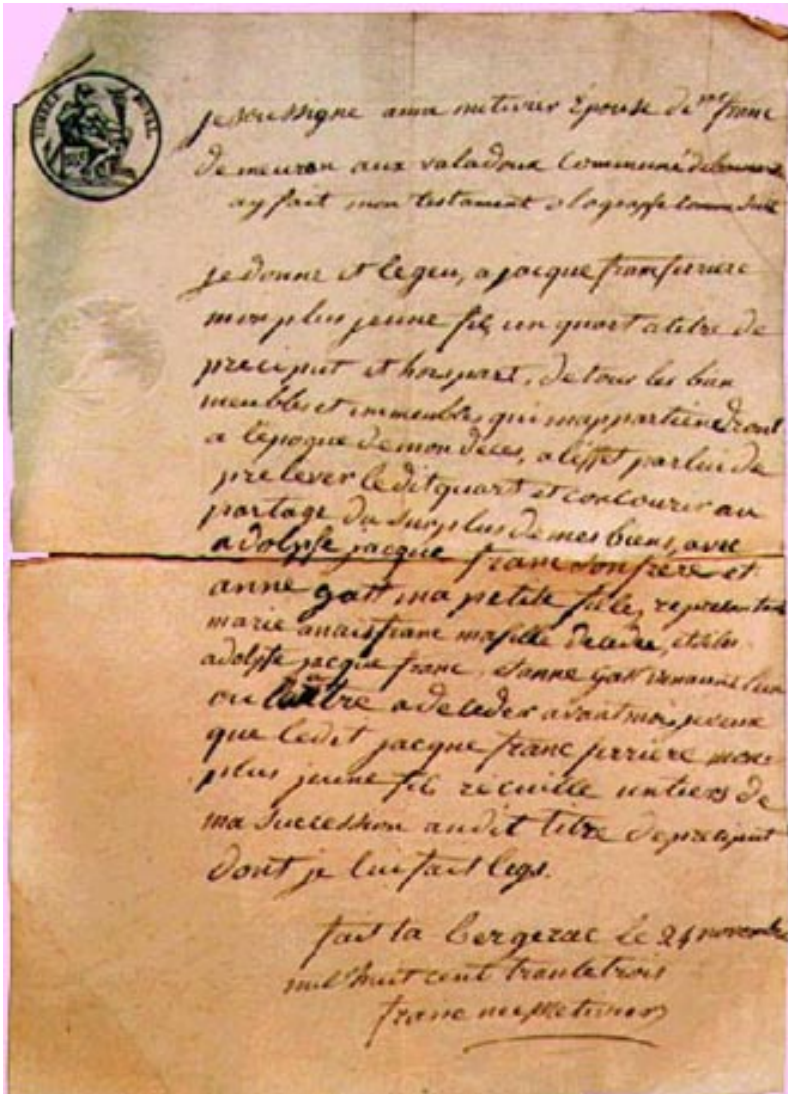 TIMBRE ROYAL
je soussigne anne metivier Épouse de mr franc
demeuran aux valadoux Commune de
ay fait mon testament olograffe Comme Suit
je donne et legeu, a jacque franc ferriere
mon plus jeune fils un quart a titre de
preciput et hors part, de tous les bien
meubles et immeubles qui mappartiendront
a lépoque de mon deces, a leffet par lui de
prelever le dit quart et concourir au
partage du surplus de mes biens, avec
adolpfe jacque franc son frere et
anne gatt ma petite fille, representant
marie anais franc ma fille decedée, et si les
adolpfe jacque franc, et anne gatt venaient l'un
ou lautre a deceder avant moi, je veux
que ledit jacque franc ferriere mon
plus jeune fils récuille un tiers de
ma succession audit titre de preciput
dont je lui fait legs.
fait a Bergerac le 24 novembre
mil huit cent trante trois
franc née Metivier